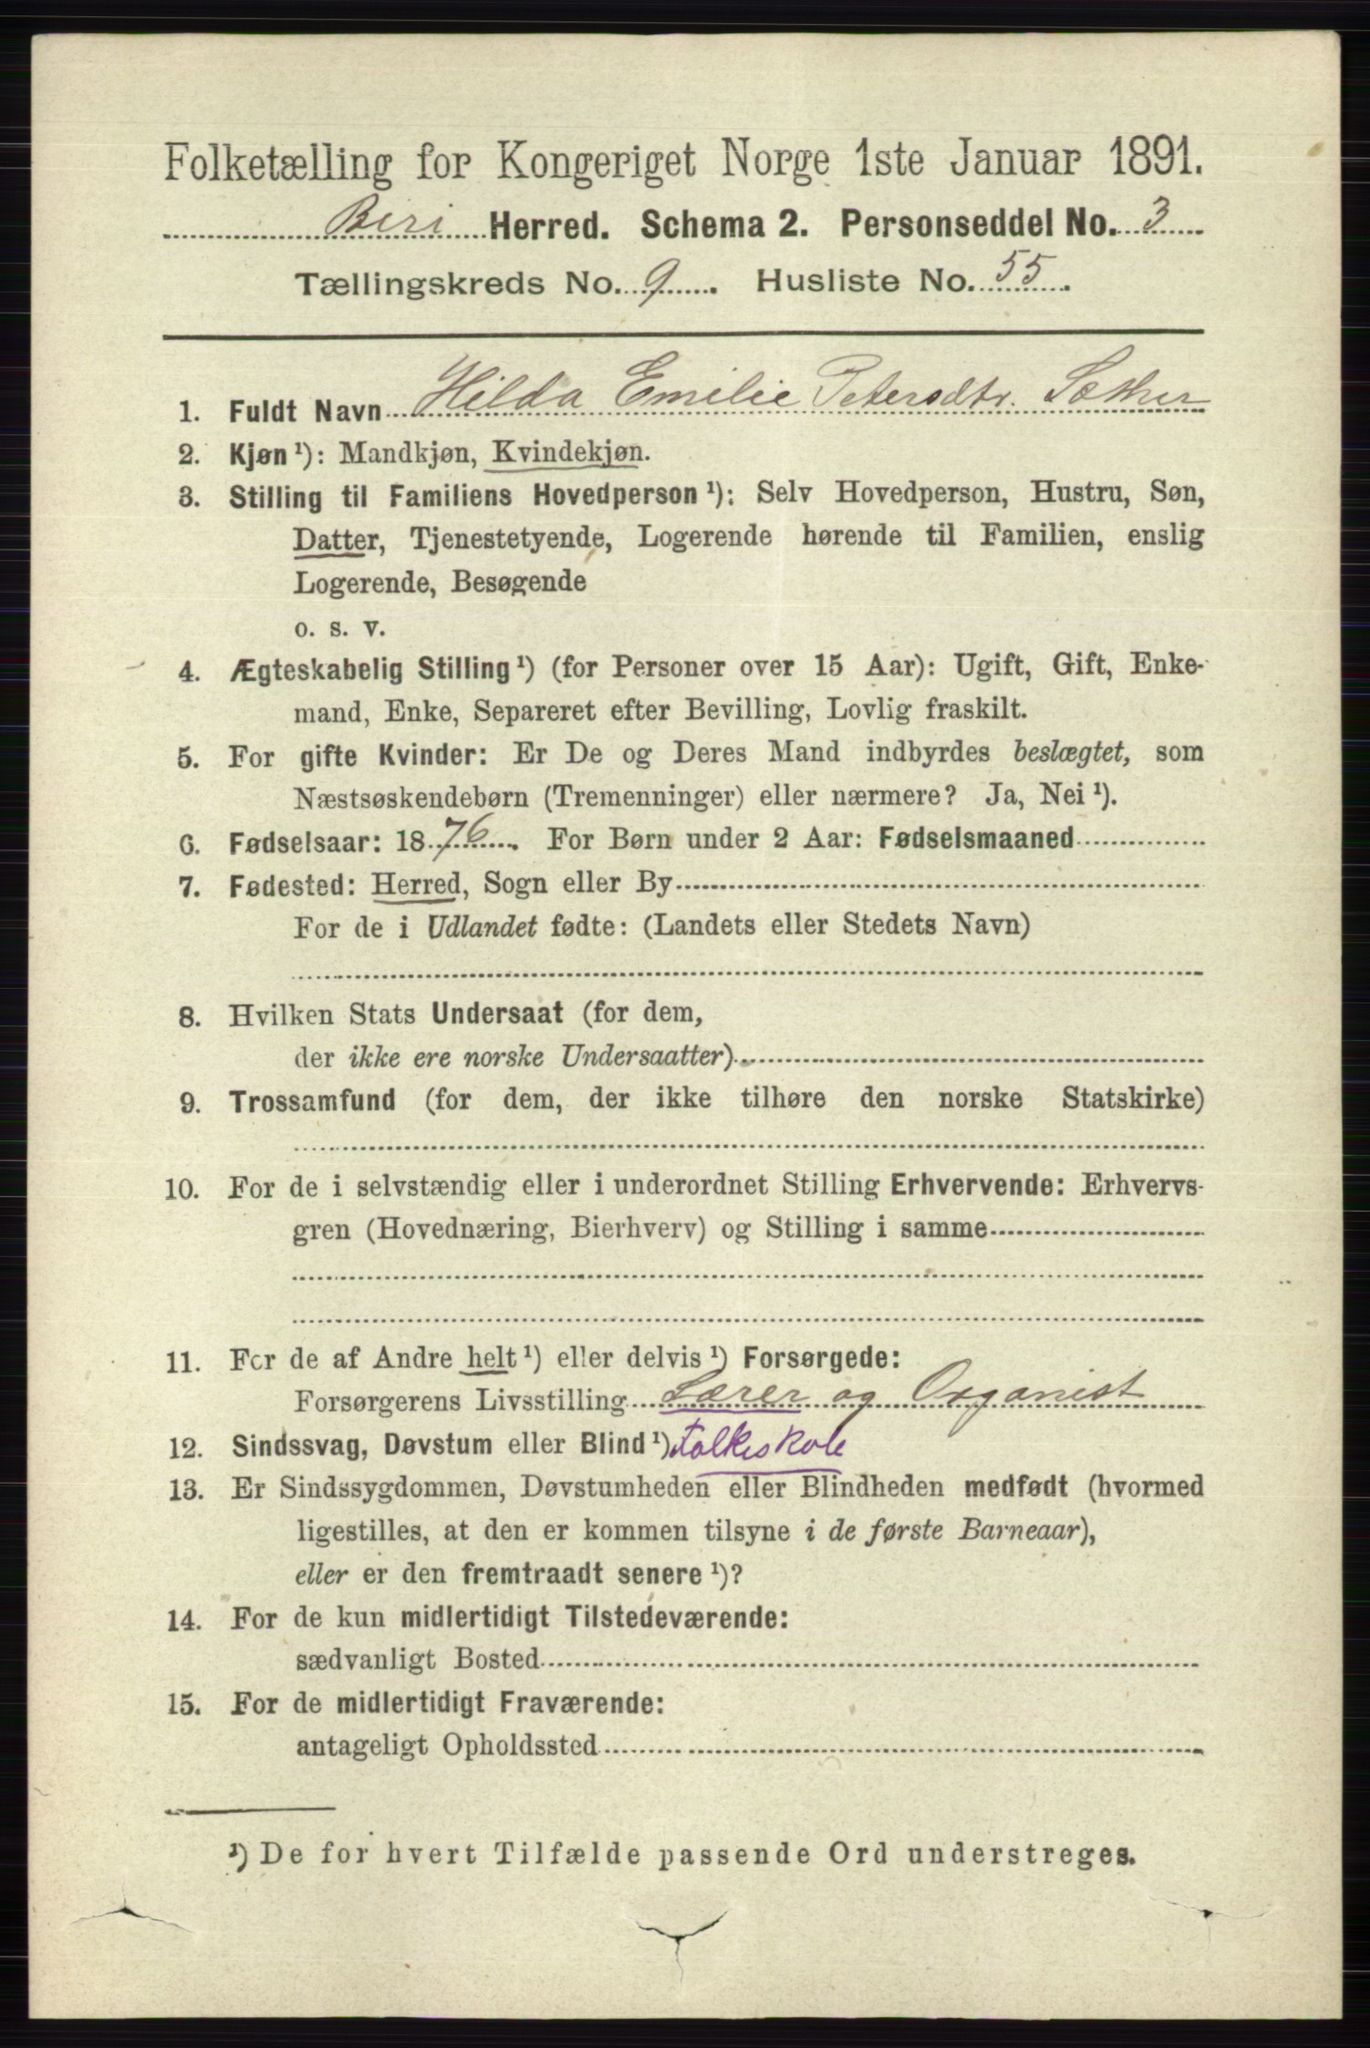 Folketælling for Kongeriget Norge 1ste Januar 1891.
Biri Herred. Schema 2. Personseddel No. 3
Tællingskreds No. 9. Husliste No. 55.
1. Fuldt Navn Hilda Emilie Petersdtr. Sæther
2. Kjøn ¹): Mandkjøn, Kvindekjøn.
3. Stilling til Familiens Hovedperson ¹): Selv Hovedperson, Hustru, Søn,
Datter, Tjenestetyende, Logerende hørende til Familien, enslig
Logerende, Besøgende
o. s. v.
4. Ægteskabelig Stilling ¹) (for Personer over 15 Aar): Ugift, Gift, Enke-
mand, Enke, Separeret efter Bevilling, Lovlig fraskilt.
5. For gifte Kvinder: Er De og Deres Mand indbyrdes beslægtet, som
Næstsøskendebørn (Tremenninger) eller nærmere? Ja, Nei ¹).
6. Fødselsaar: 1876. For Børn under 2 Aar: Fødselsmaaned
7. Fødested: Herred, Sogn eller By
For de i Udlandet fødte: (Landets eller Stedets Navn)
8. Hvilken Stats Undersaat (for dem,
der ikke ere norske Undersaatter)
9. Trossamfund (for dem, der ikke tilhøre den norske Statskirke)
10. For de i selvstændig eller i underordnet Stilling Erhvervende: Erhvervs-
gren (Hovednæring, Bierhverv) og Stilling i samme
11. For de af Andre helt ¹) eller delvis ¹) Forsørgede:
Forsørgerens Livsstilling Lærer og Organist
12. Sindssvag, Døvstum eller Blind ¹) Folkeskole
13. Er Sindssygdommen, Døvstumheden eller Blindheden medfødt (hvormed
ligestilles, at den er kommen tilsyne i de første Barneaar),
eller er den fremtraadt senere ¹)?
14. For de kun midlertidigt Tilstedeværende:
sædvanligt Bosted
15. For de midlertidigt Fraværende:
antageligt Opholdssted
¹) De for hvert Tilfælde passende Ord understreges.